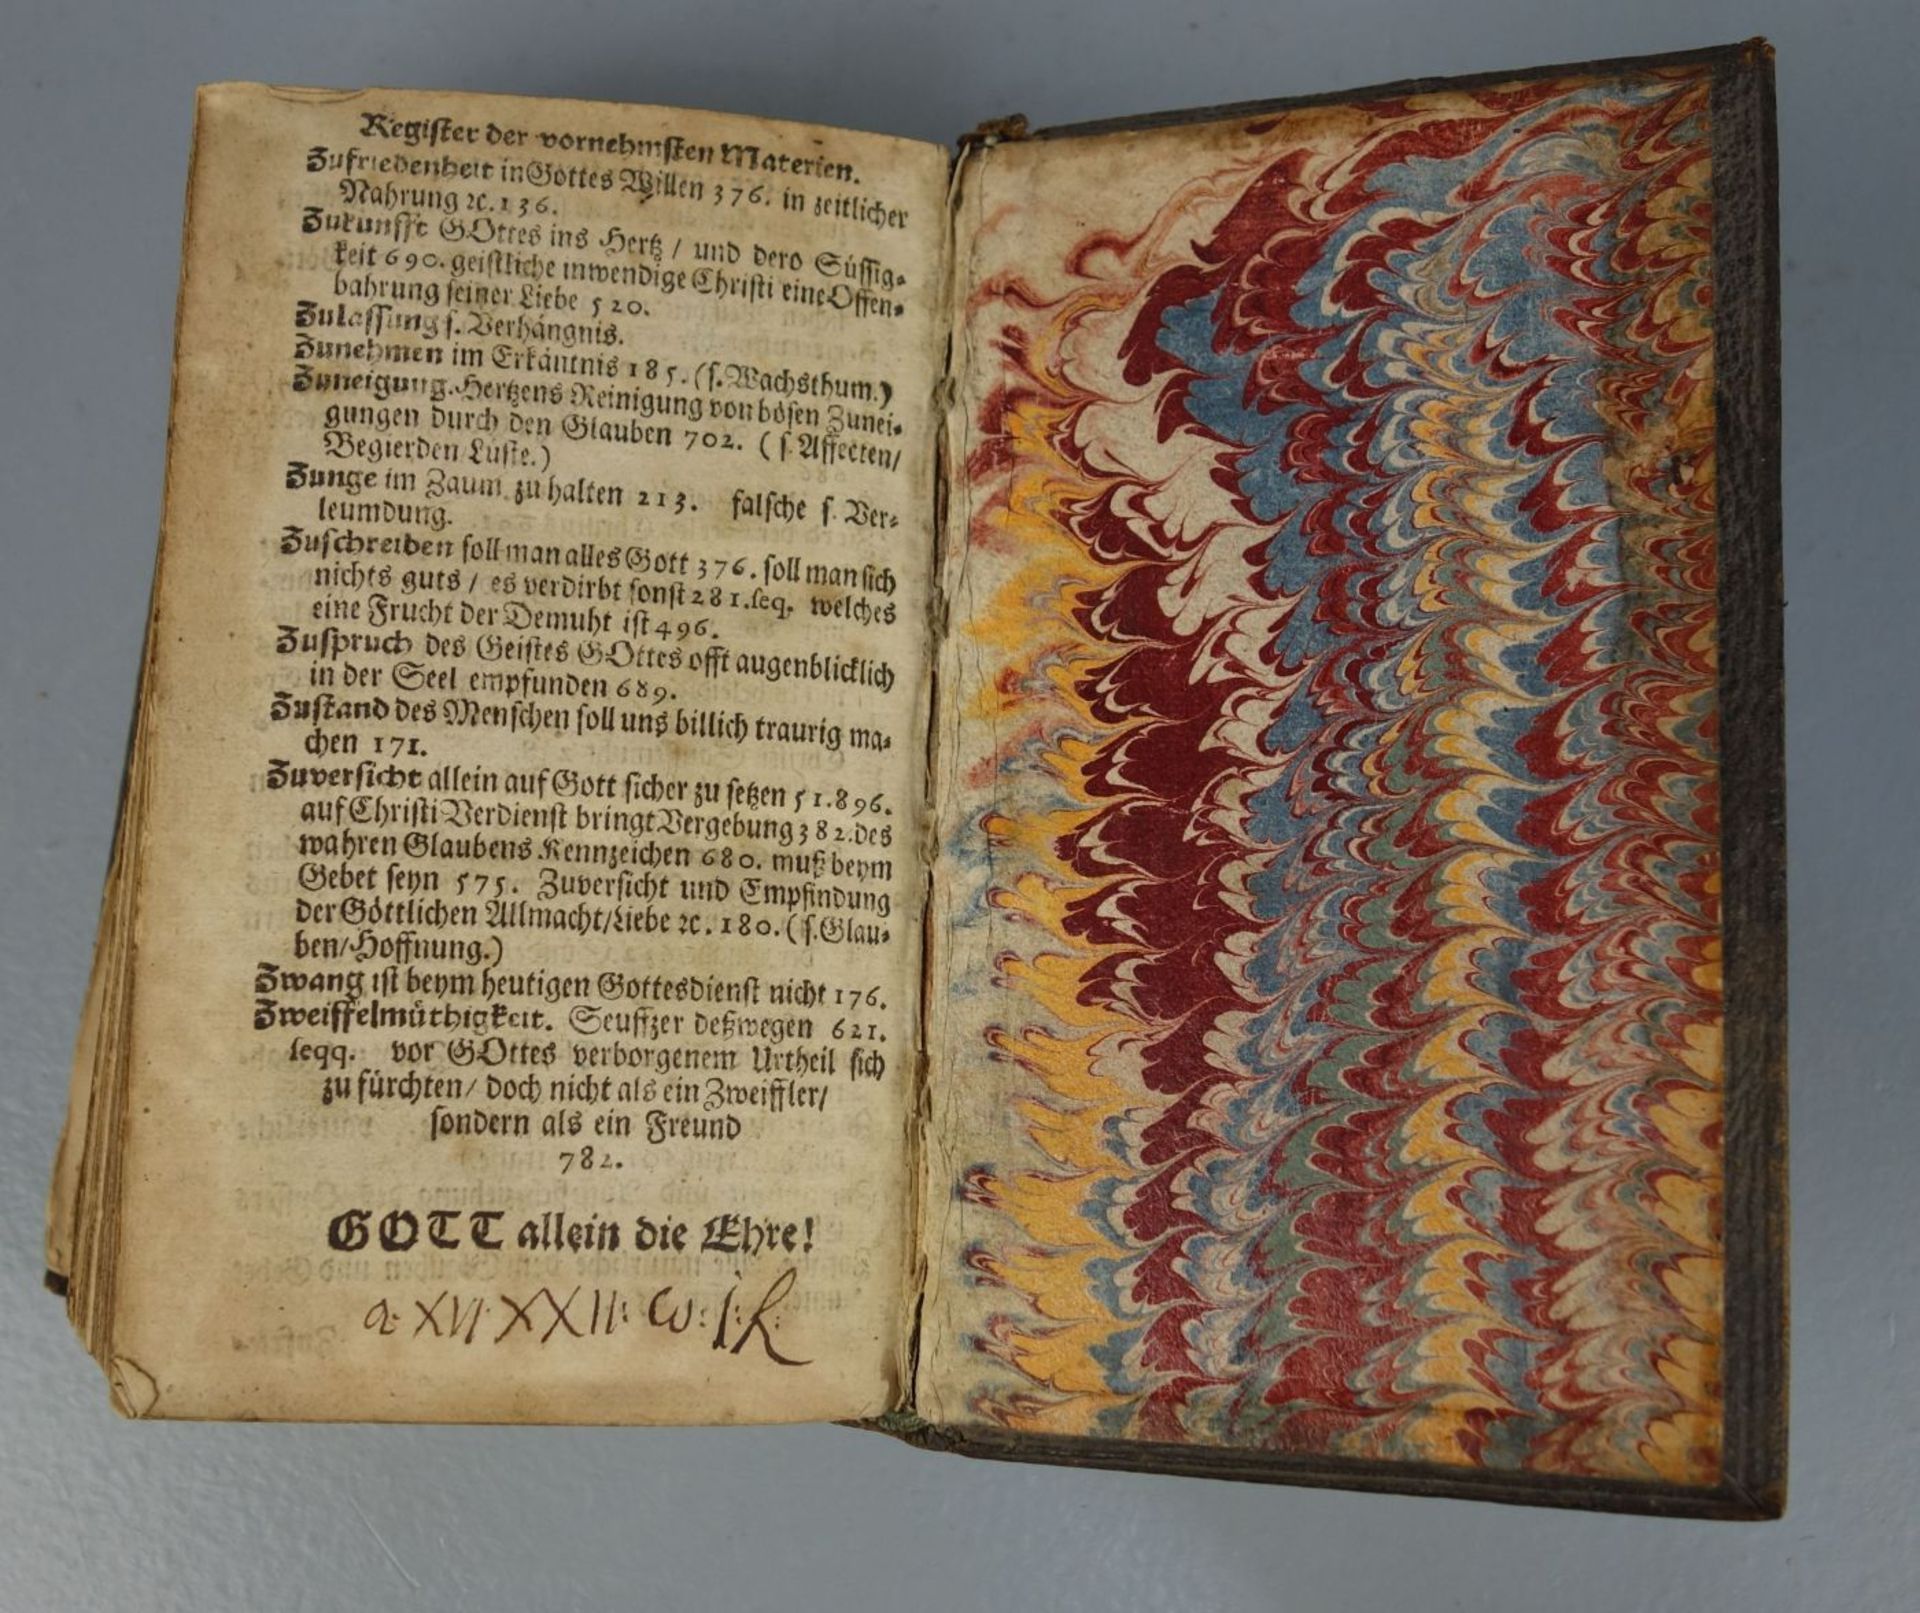 Register der vornehmsten Materien.
Zufriedenheit in Gottes Willen 376. in zeitlicher
Nahrung ꝛc. 136.
Zukunfft GOttes ins Hertz / und dero Süssig-
keit 690. geistliche inwendige Christi eine Offen-
bahrung seiner Liebe 520.
Zulassung s. Verhängnis.
Zunehmen im Erkäntnis 185. (s. Wachsthum.)
Zuneigung. Hertzens Reinigung von bösen Zunei-
gungen durch den Glauben 702. (s. Affecten/
Begierden/Lüste.)
Zunge im Zaum zu halten 213. falsche s. Ver-
leumdung.
Zuschreiben soll man alles Gott 376. soll man sich
nichts guts / es verdirbt sonst 281. seq. welches
eine Frucht der Demuht ist 496.
Zuspruch des Geistes GOttes offt augenblicklich
in der Seel empfunden 689.
Zustand des Menschen soll uns billich traurig ma-
chen 171.
Zuversicht allein auf Gott sicher zu setzen 51. 896.
auf Christi Verdienst bringt Vergebung 382. des
wahren Glaubens Kennzeichen 680. muß beym
Gebet seyn 575. Zuversicht und Empfindung
der Göttlichen Allmacht/Liebe ꝛc. 180. (s. Glau-
ben/Hoffnung.)
Zwang ist beym heutigen Gottesdienst nicht 176.
Zweiffelmüthigkeit. Seuffzer deßwegen 621.
seqq. vor GOttes verborgenem Urtheil sich
zu fürchten / doch nicht als ein Zweiffler /
sondern als ein Freund
782.
GOTT allein die Ehre!
a: XVI: XXII: W: J: R: